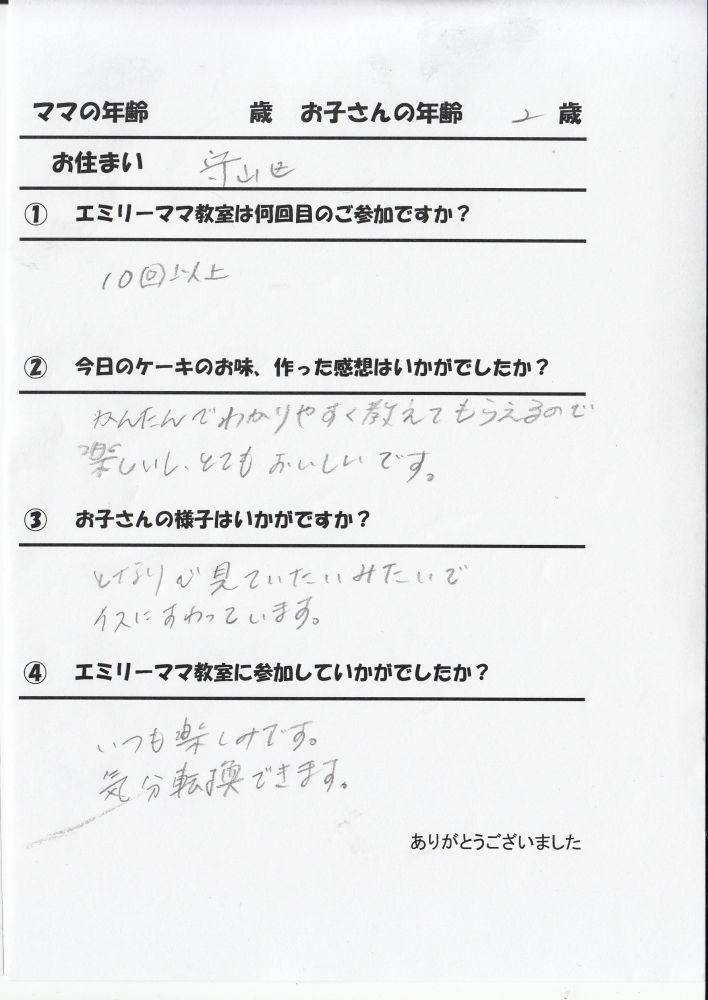 ママの年齢 歳 お子さんの年齢 2 歳
お住まい 守山区
① エミリーママ教室は何回目のご参加ですか？
10回以上
② 今日のケーキのお味、作った感想はいかがでしたか？
かんたんでわかりやすく教えてもらえるので
楽しいし、とてもおいしいです。
③ お子さんの様子はいかがですか？
となりで見ていたいみたいで
イスにすわっています。
④ エミリーママ教室に参加していかがでしたか？
いつも楽しみです。
気分転換できます。
ありがとうございました